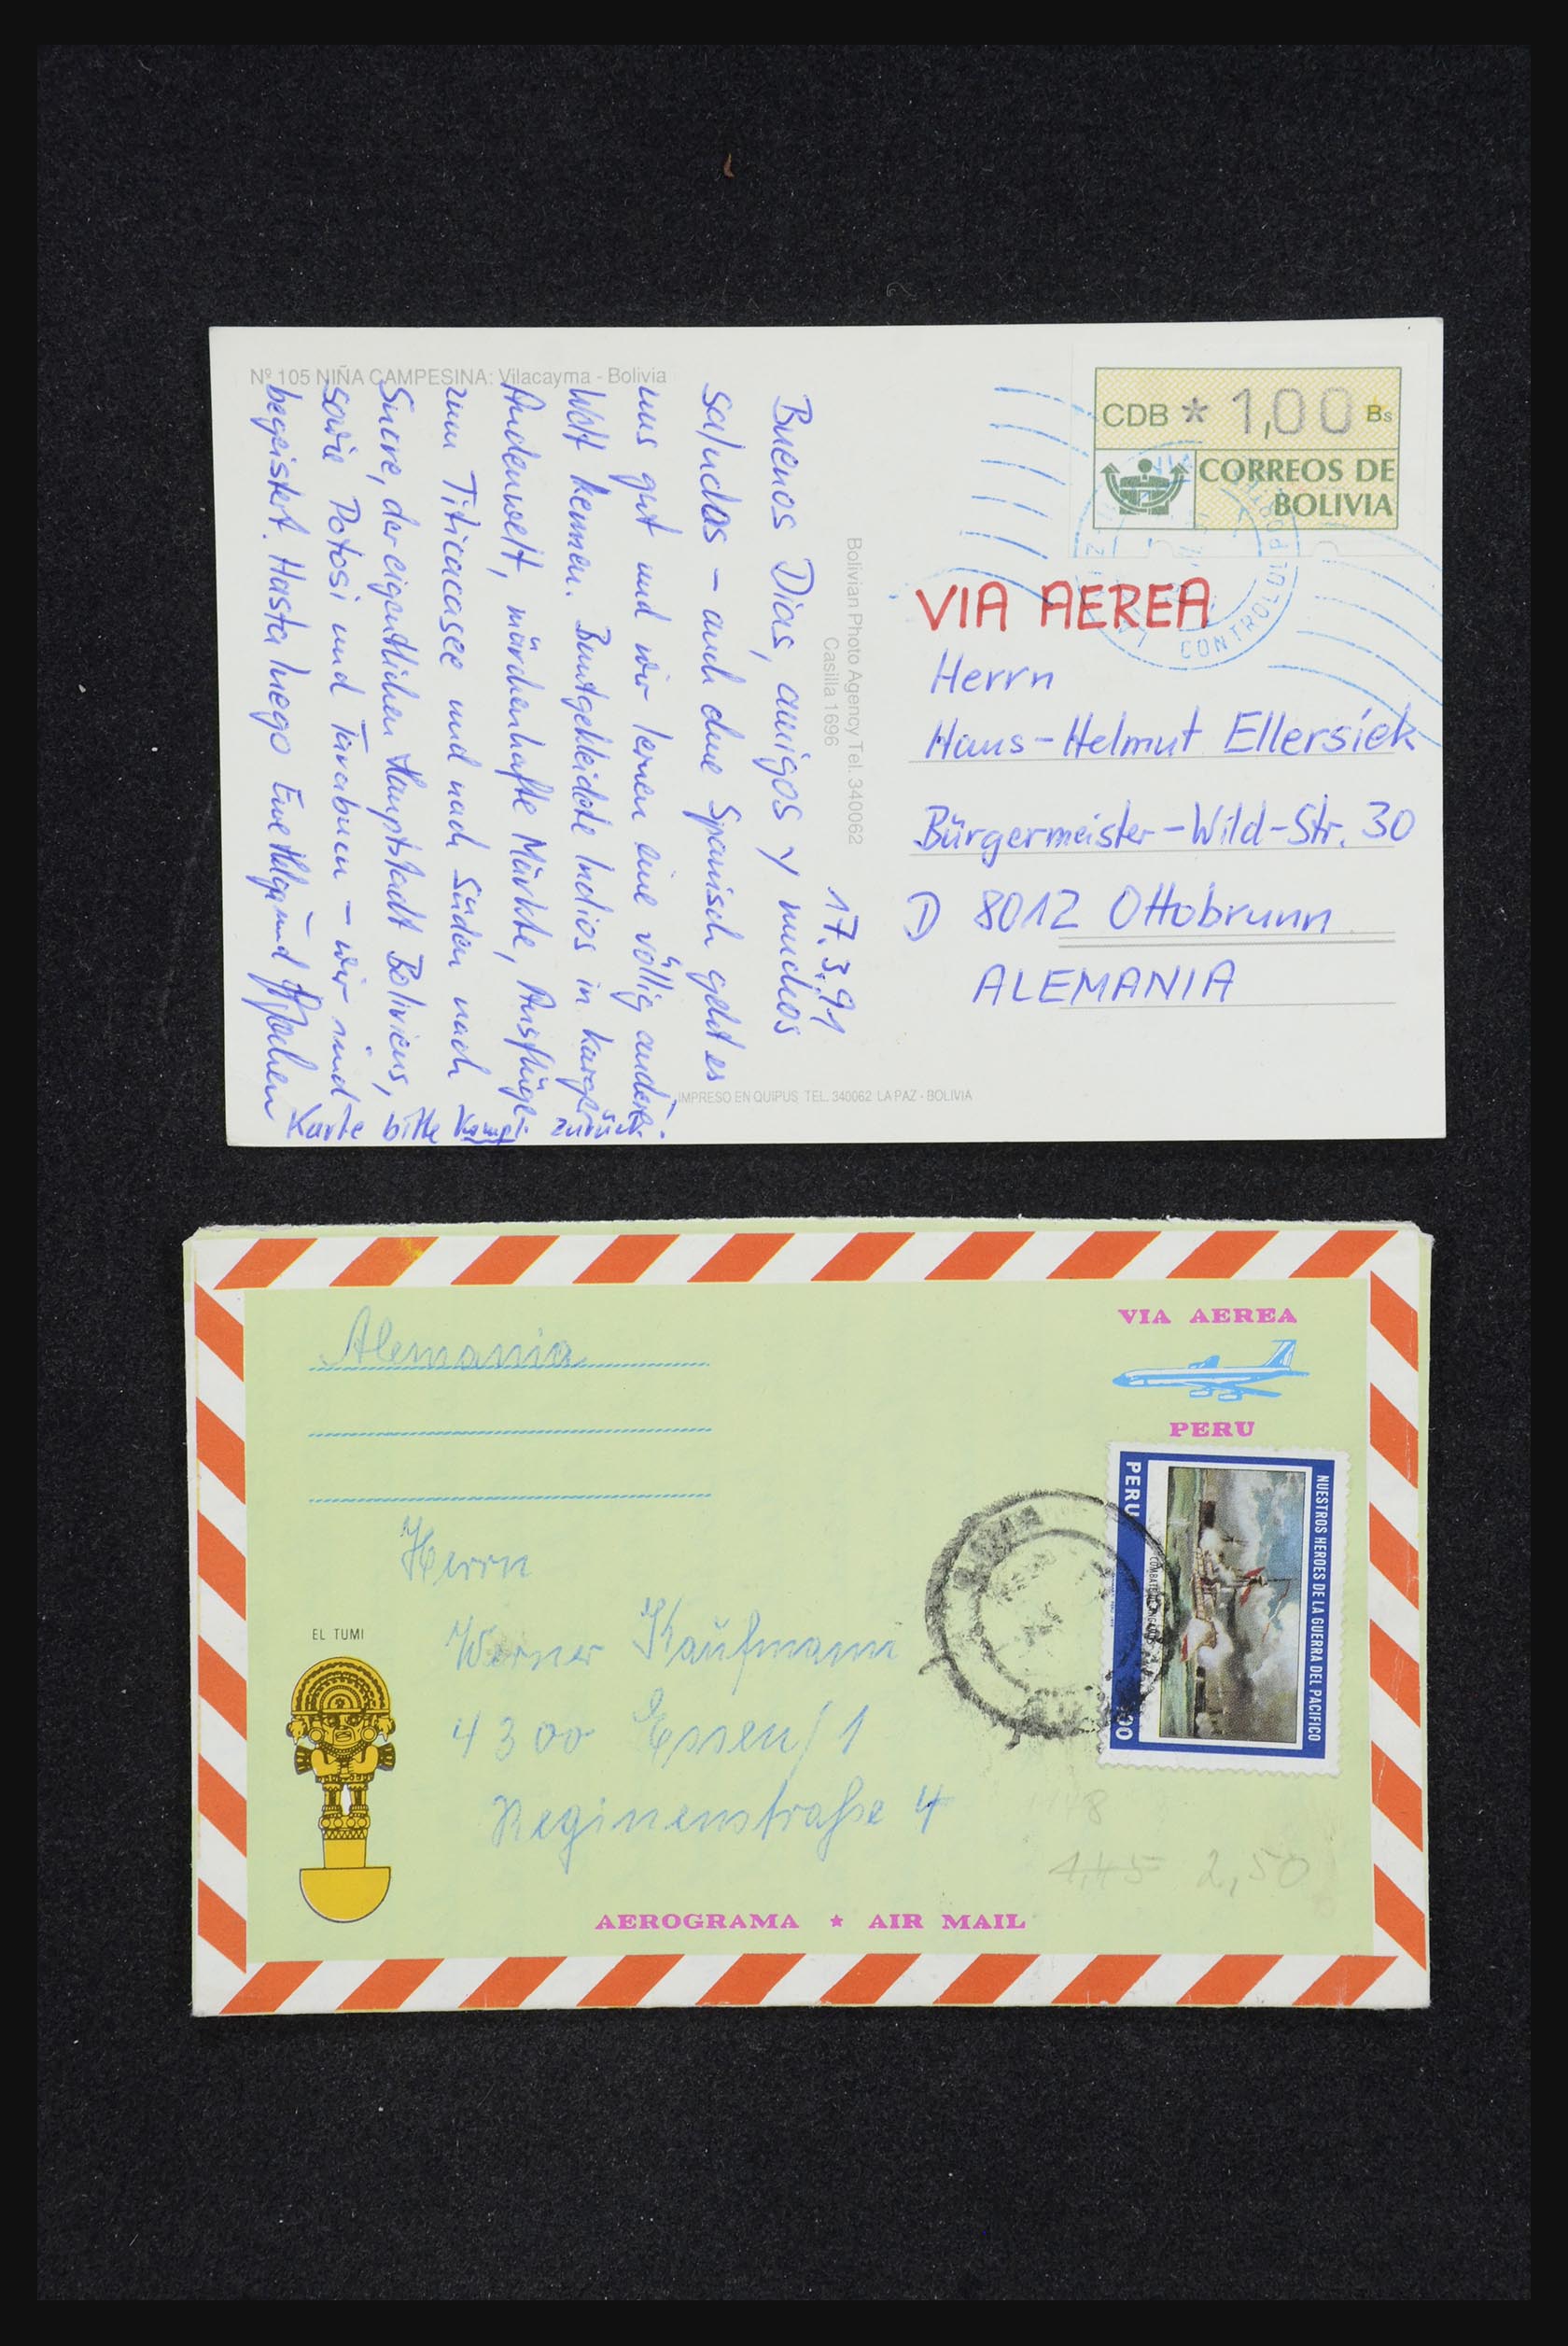 Nº 105 NIÑA CAMPESINA: Vilacayma - Bolivia
17.3.91
Buenos Dias, amigos y muchos
saludos – auch ohne Spanisch geht es
uns gut und wir lernen eine völlig andere
Welt kennen. Buntgekleidete Indios in karger
Andenwelt, märchenhafte Märkte, Ausflüge
zum Titicacasee und nach Süden nach
Sucre, der eigentlichen Hauptstadt Boliviens,
sowie Potosi und Tarabuco – wir sind
begeistert. Hasta luego Eure Helga und Jochen
Karte bitte zurück!
Bolivian Photo Agency Tel. 340062
Casilla 1696
IMPRESO EN QUIPUS TEL. 340062 LA PAZ - BOLIVIA
CDB * 1,00 Bs
CORREOS DE
BOLIVIA
CONTROL
VIA AEREA
Herrn
Hans-Helmut Ellersiek
Bürgermeister-Wild-Str. 30
D 8012 Ottobrunn
ALEMANIA
Alemania
VIA AEREA
PERU
NUESTROS HEROES DE LA GUERRA DEL PACIFICO
PERU
Herrn
Werner Kaufmann
4300 Essen/1
Reginenstraße 4
EL TUMI
8
1,45 2,50
AEROGRAMA ★ AIR MAIL